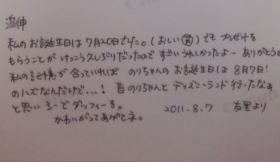 追伸
私のお誕生日は7月20日でした。(おしい) でも プレゼント
もらうことが けっこう久しぶりだったので すごいうれしかったよー ありがとう
私の記憶が合っていれば のりちゃんの お誕生日は 8月7日!
のハズなんだけど…! 昔のりちゃんと ディズニーランド 行ったなぁ
と思い ダッフィーを。
かわいがってあげてネ。 2011.8.7 より